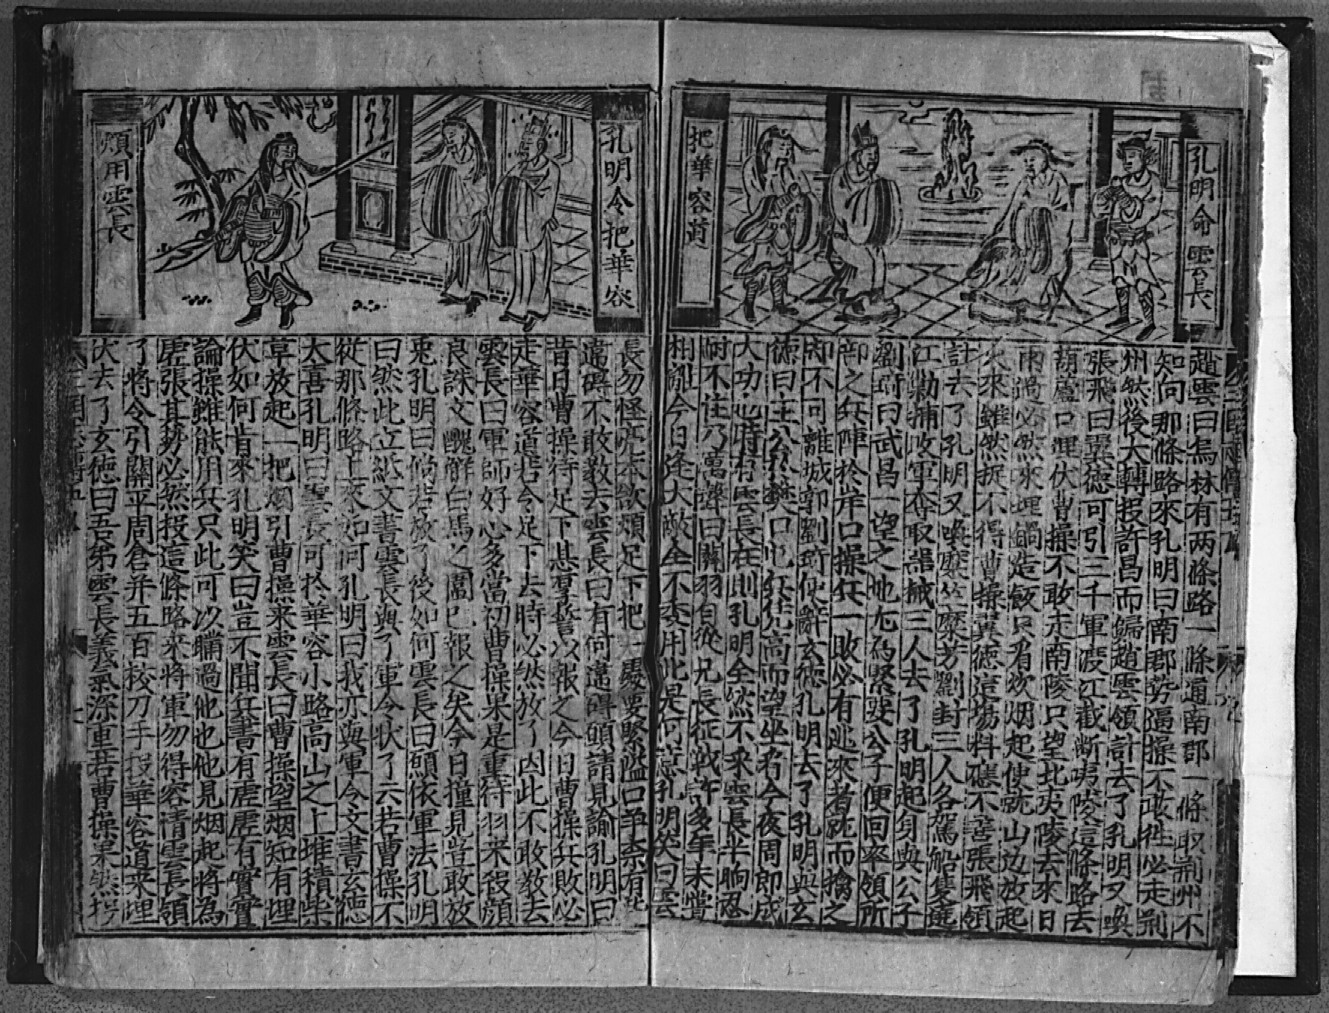 孔明命雲長
把華容道
趙雲曰烏林有两條路一條通南郡一條取荆州不
知向那條路來孔明曰南郡势逼操不敢徃必走荆
州然後大轉投許昌而歸趙雲領計去了孔明又喚
張飛曰翼德可引三千軍渡江截断夷陵這條路去
葫蘆口埋伏曹操不敢走南陵只望北夷陵去來日
雨過必然來埋鍋造飯只看炊烟起便就山边放起
火來雖然捉不得曹操翼德這塲料應不善張飛領
計去了孔明又喚糜竺糜芳劉封三人各駕船隻遶
江勦捕敗軍奪取器械三人去了孔明起身與公子
劉琦曰武昌一望之地尤為緊要公子便回率領所
部之兵陣於岸口操兵一敗必有逃來者就而擒之
却不可離城郭劉琦便辭玄德孔明去了孔明與玄
德曰主公於樊口屯兵凭高而望坐看今夜周郎成
大功也時有雲長在側孔明全然不采雲長半晌忍
耐不住乃高聲曰關羽自從兄長征戰許多年未嘗
相離今日逢大敵全不委用此是何意孔明笑曰雲
孔明令把華容
煩用雲長
長勿怪某本欲煩足下把一 處要緊隘口争奈有些
違碍不敢教去雲長曰有何違碍頭請見諭孔明曰
昔日曹操待足下甚厚誓以報之今日曹操兵敗必
走華容道若令足下去時必然放了因此不敢教去
雲長曰軍師好心多當初曹操果是重待羽來殺顔
良誅文醜觧白馬之圍已報之矣今日撞見豈敢放
免孔明曰倘若放了後如何雲長曰願依軍法孔明
曰然此立紙文書雲長與了軍令状了六若曹操不
從那條路上來如何孔明曰我亦與軍令文書玄德
大喜孔明曰雲長可扵華容小路高山之上堆積柴
草放起一把烟引曹操来雲長曰曹操望烟知有埋
伏如何肯來孔明笑曰豈不聞兵書有虚虚有實實
論操雖能用兵只此可以瞞過他也他見烟起將為
虚張其势必然投這條路来將軍勿得容清雲長領
了將令引關平周倉并五百校刀手投華容道来埋
伏去了玄德曰吾弟雲長義氣深重若曹操果然投